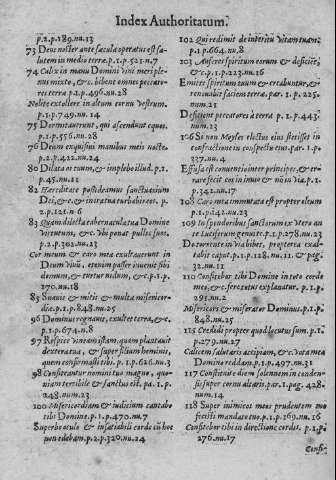 Index Authoritatum.
p.2.p.189.nu.13
73 Deus noster ante sæcula operatus est sa-
lutem in medio terræ.p.1.p.521.n.7
74 Calix in manu Domini vini meri ple-
nus mixto, &c. bibent omnes peccato-
res terræ p.1.p.496.nu.28
Nolite extollere in altum cornu vestrum.
p.1.p.749.nu.14
75 Dormitauerunt, qui ascenderunt equos.
p.1.p.556.nu.28
76 Deum exquisiui manibus meis nocte.
p.2.p.422.nu.24
80 Dilata os tuum, & implebo illud.p.1.
p.45.nu.21
82 Hæreditate possideamus sanctuarium
Dei, &c. & ita turba
p.2.p.121.n.6
83 Quam dilecta tabernacula tua Domine
virtutum, &c. Vbi ponat pullos suos.
p.2.p.302.nu.23
Cor meum & caro mea exultauerunt in
Deum viuũ, etenim passer inuenit sibi
domum, & turtur nidum, &c.p.1.p.
170.nu.18
85 Suauis & mitis & multæ misericor-
diæ.p.1.p.848.nu.25
96 Dominus regnauit, exultet terra, &c.
p.1.p.674.n.8
97 Respice vineam istam, quam plantauit
dextera tua, & super filium hominis,
quem confirmasti tibi. p.1.p.626.nu.3
98 Confiteantur nomini tuo magno, quo-
niam terribile & sanctum est. pa.1.p.
248.nu.23
100 Misericordiam & iudicium cantabo
tibi Domine.p.1.p.470.nu.7
Superbo oculo & insatiabili corde cũ hoc
non edebam.p.2.p.320.nu.24
102 Qui redimit de interitu vitam tuam.
p.1.p.664.nu.8
103 Auferes spiritum eorum & deficiẽt,
&c.p.1.p.223.nu.16
Emittes spiritum tuum & creabuntur, &
renouabis faciem terræ. par.1.p.225.
num.21
Deficient peccatores à terra p.1.p.443.
num.23
105 Si non Moyses electus eius stetisset in
confractione in conspectu eius.par.1.p.
337.nu.4
Effusa est contentio inter principes, & er-
rare fecit eos in inuio & nõ in via.p.1.
p.341.nu.17
108 Caro mea immutata est propter oleum
p.1.p.142.nu.23
109 In splendoribus sanctorum ex vtero an
te Luciferum genui te.p.1.p.278.nu.23
De torrente in via bibet, propterea exal-
tabit caput.p.1.p.128.nu.11. & pag.
32.nu.11
110 Confitebor tibi Domine in toto corde
meo, &c. p.1.p.
295.nu.2
Misericors & miserator Dominus.p.1.p.
848.nu.25
115 Credidi propter quod locutus sum.p.1.
Calicem salutaris accipiam, &c. vota mea
Domino reddam p.1.p.497.nu.31
117 Constituite diem solemnem in conden-
sis super cornu altaris.par.1.pag.428.
num.14
118 Super inimicos meos prudentem mo
fecisti mandato tuo.p.1.p.169.nu.16
Confitebor tibi in directione cordis. p.1.p.
276.nu.17